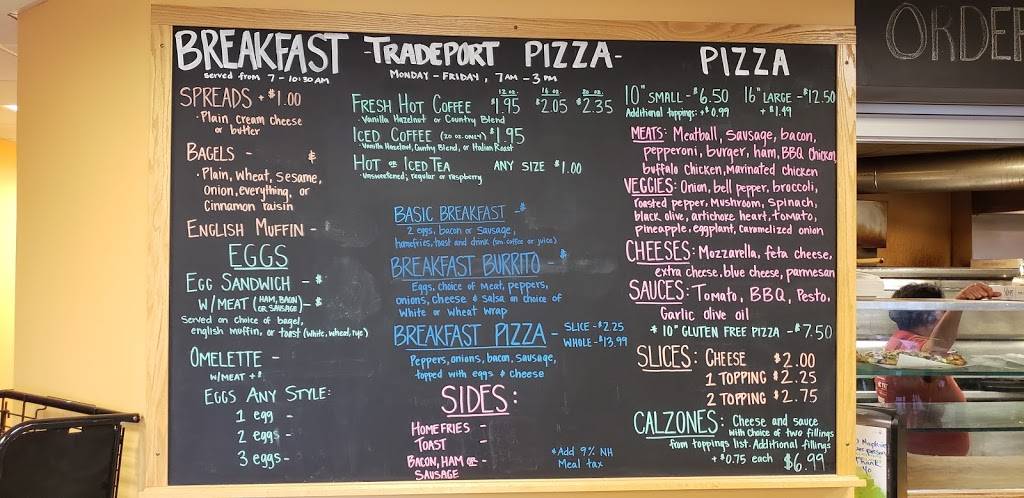 BREAKFAST
served from 7 - 10:30 AM
SPREADS + $1.00
· Plain cream cheese
or butter
BAGELS - $
· Plain, wheat, sesame,
onion, everything, or
Cinnamon raisin
ENGLISH MUFFIN -
EGGS
EGG SANDWICH - $
W/MEAT (HAM, BACON OR SAUSAGE) - $
Served on choice of bagel,
english muffin, or toast (white, wheat, rye)
OMELETTE -
W/MEAT + $
EGGS ANY STYLE:
1 egg -
2 eggs -
3 eggs -
-TRADEPORT PIZZA-
MONDAY - FRIDAY, 7AM - 3PM
12 oz. 16 oz. 20 oz.
FRESH HOT COFFEE $1.95 $2.05 $2.35
· Vanilla Hazelnut or Country Blend
ICED COFFEE (20 OZ. ONLY) $1.95
· Vanilla Hazelnut, Country Blend, or Italian Roast
HOT OR ICED TEA ANY SIZE $1.00
· Unsweetened; regular or raspberry
BASIC BREAKFAST - $
2 eggs, bacon or sausage,
homefries, toast and drink (sm. coffee or juice)
BREAKFAST BURRITO - $
Eggs, choice of meat, peppers,
onions, cheese & salsa on choice of
white or wheat wrap
BREAKFAST PIZZA - SLICE - $2.25
WHOLE - $13.99
Peppers, onions, bacon, sausage,
topped with eggs & cheese
SIDES:
HOMEFRIES -
TOAST -
BACON, HAM OR -
SAUSAGE
*Add 9% NH
Meal tax
PIZZA
10" SMALL - $6.50 16" LARGE - $12.50
Additional toppings: + $0.99 + $1.49
MEATS: Meatball, sausage, bacon,
pepperoni, burger, ham, BBQ Chicken,
buffalo chicken, Marinated chicken
VEGGIES: Onion, bell pepper, broccoli,
roasted pepper, mushroom, spinach,
black olive, artichoke heart, tomato,
pineapple, eggplant, caramelized onion
CHEESES: Mozzarella, feta cheese,
extra cheese, blue cheese, parmesan
SAUCES: Tomato, BBQ, Pesto,
Garlic olive oil
* 10" GLUTEN FREE PIZZA - $7.50
SLICES: CHEESE $2.00
1 TOPPING $2.25
2 TOPPING $2.75
CALZONES: Cheese and sauce
with choice of two fillings
from toppings list. Additional fillings
+ $0.75 each $6.99
ORDER
Thank